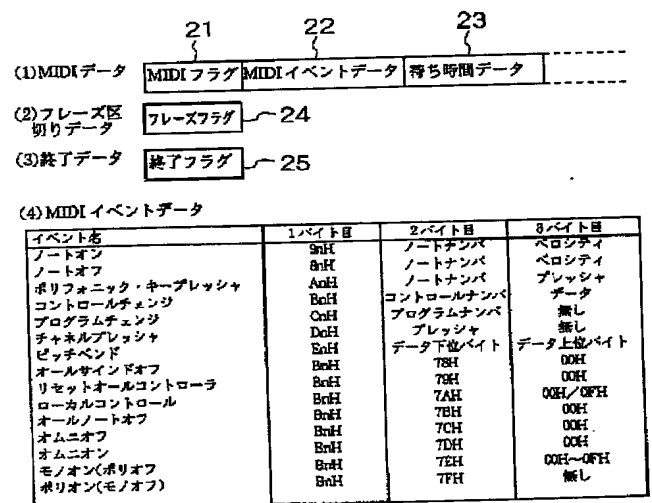 21 22 23
(1)MIDIデータ MIDIフラグ MIDIイベントデータ 待ち時間データ
(2)フレーズ区切りデータ フレーズフラグ 24
(3)終了データ 終了フラグ 25
(4)MIDIイベントデータ
イベント名 1バイト目 2バイト目 3バイト目
ノートオン 9nH ノートナンバ ベロシティ
ノートオフ 8nH ノートナンバ ベロシティ
ポリフォニック・キープレッシャ AnH ノートナンバ プレッシャ
コントロールチェンジ BnH コントロールナンバ データ
プログラムチェンジ CnH プログラムナンバ 無し
チャネルプレッシャ DnH プレッシャ 無し
ピッチベンド EnH データ下位バイト データ上位バイト
オールサインドオフ BnH 78H 00H
リセットオールコントローラ BnH 79H 00H
ローカルコントロール BnH 7AH 00H/0FH
オールノートオフ BnH 7BH 00H
オムニオフ BnH 7CH 00H
オムニオン BnH 7DH 00H
モノオン(ポリオフ BnH 7EH 00H~0FH
ポリオン(モノオフ) BnH 7FH 無し